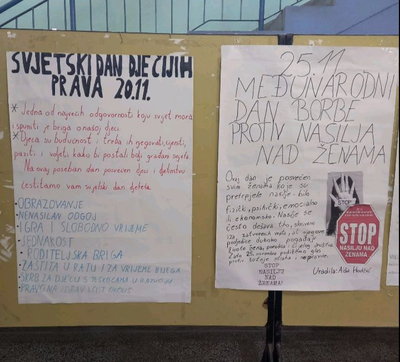 SVJETSKI DAN DJEČIJIH
PRAVA 20.11.
* Jedna od najvećih odgovornosti koju svijet mora
ispuniti je briga o našoj djeci.
* Djeca su budućnost i treba ih njegovati, cijeniti,
paziti i voljeti kako bi postali bolji građani svijeta
Na ovaj poseban dan posvećen djeci i djetinjstvu
čestitamo vam svjetski dan djeteta
OBRAZOVANJE
NENASILAN ODGOJ
IGRA I SLOBODNO VRIJEME
JEDNAKOST
RODITELJSKA BRIGA
ZAŠTITA U RATU I ZA VRIJEME BIJEGA
25.11
MEĐUNARODNI
DAN BORBE
PROTIV NASILJA
NAD ŽENAMA
Ovaj dan je posvećen
svim ženama koje su
pretrpjele nasilje bilo
fizički, psihički, emocionalno
ili ekonomsko. Nasilje se
često dešava tiho, skriveno
iza zatvorenih vrata, ali njegove
posljedice duboko pogađaju
STOP
NASILJU NAD
ŽENAMA!
STOP
STOP
NASILJU NAD
ŽENAMA!
Uradila: